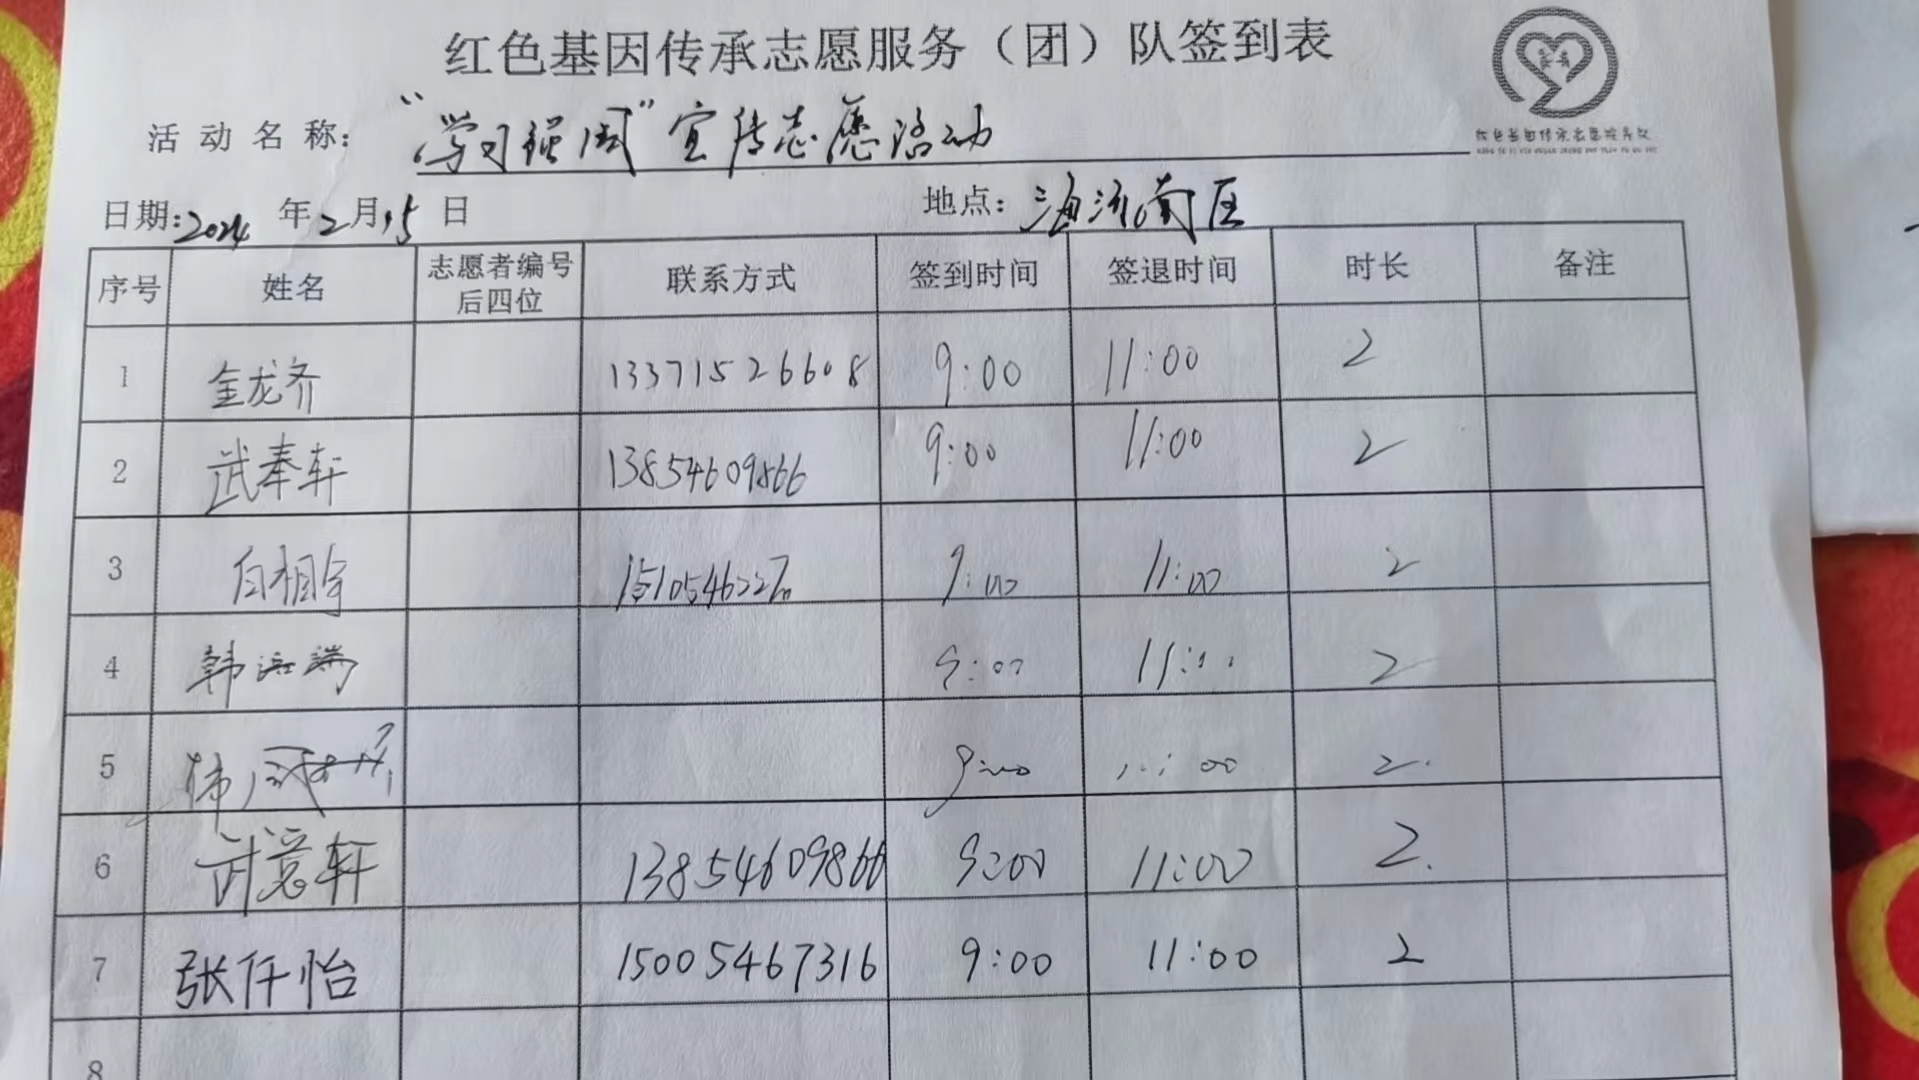 红色基因传承志愿服务（团）队签到表
活动名称："学习强国"宣传志愿活动
日期:2024 年2月15日 地点:海河南区
序号 姓名 志愿者编号后四位 联系方式 签到时间 签退时间 时长 备注
1 金龙齐 13371526608 9:00 11:00 2
2 武奉轩 13854609866 9:00 11:00 2
3 白相宇 9:00 11:00 2
4 韩 9:00 11:00 2
5 9:00 11:00 2.
6 武意轩 13854609866 9:00 11:00 2.
7 张仟怡 15005467316 9:00 11:00 2
8